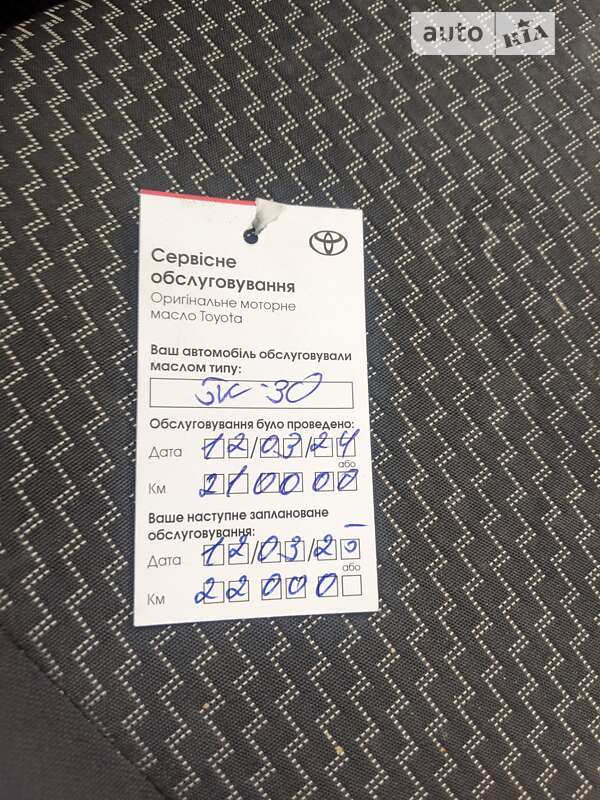 auto RIA
Сервісне
обслуговування
Оригінальне моторне
масло Toyota
Ваш автомобіль обслуговували
маслом типу:
5W-30
Обслуговування було проведено:
Дата 12/03/24
або
Км 210000
Ваше наступне заплановане
обслуговування:
Дата 12/03/25
або
Км 22000